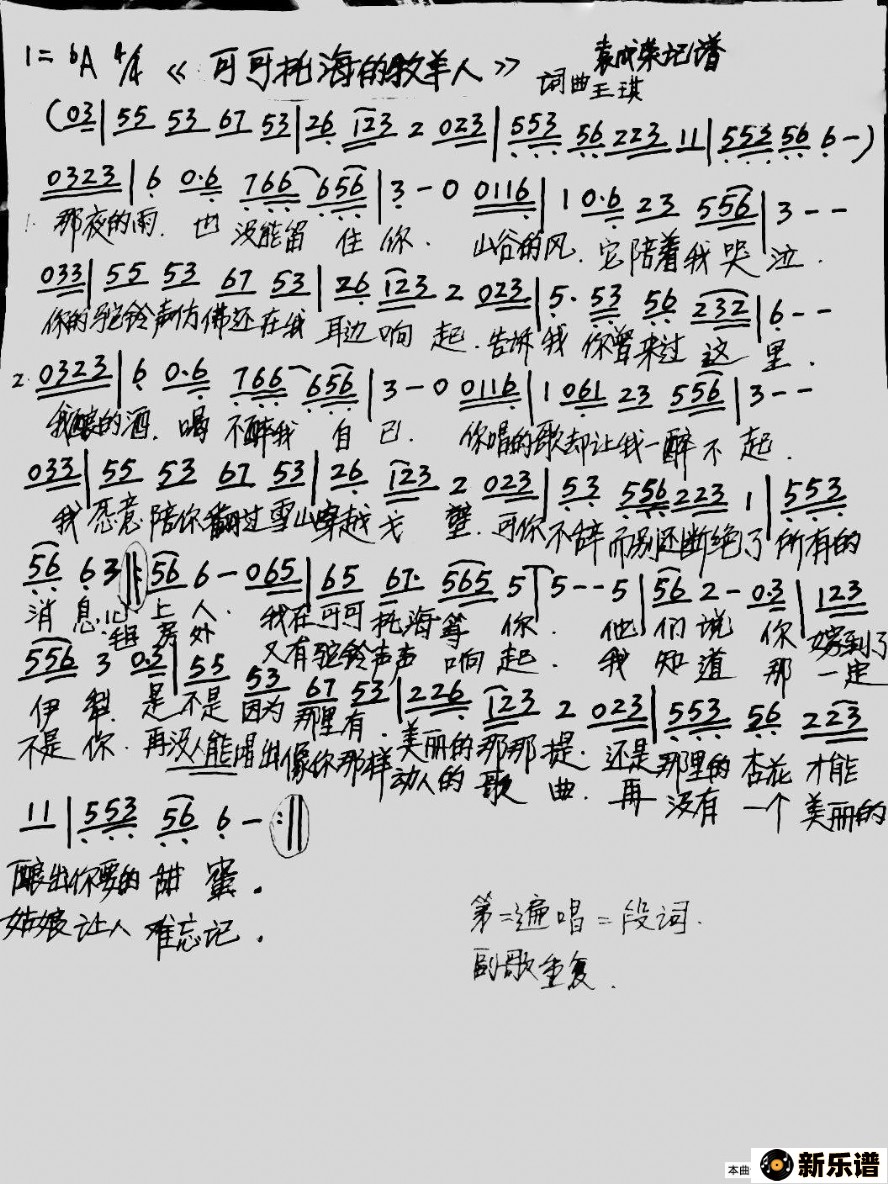 1=♭A 4/4 《可可托海的牧羊人》 词曲王琪 袁成荣记谱
(03|55 53 67 53|26 123 2 023|553 56 223 11|553 56 6-)
0323|6 0·6 766 656|3-0 0116|1 0·6 23 556|3--
1. 那夜的雨. 也没能留住你. 山谷的风. 它陪着我哭泣.
033|55 53 67 53|26 123 2 023|5· 53 56 232|6--
你的驼铃声仿佛还在我耳边响起. 告诉我你曾来过这里.
2. 0323|6 0·6 766 656|3-0 0116|1 061 23 556|3--
我酿的酒. 喝不醉我自己. 你唱的歌却让我一醉不起.
033|55 53 67 53|26 123 2 023|53 556 223 1|553
我愿意陪你翻过雪山穿越戈壁. 可你不辞而别还断绝了所有的
56 63‖:56 6-065|65 67· 565 5|5--5|56 2-0·3|123
消息. 心上人. 我在可可托海等你. 他们说你嫁到了
毡房外 又有驼铃声声响起. 我知道那一定
556 3 0·3|55 53 67 53|226 123 2 023|553 56 223
伊犁. 是不是因为那里有. 美丽的那那提. 还是那里的杏花才能
不是你. 再没人能唱出像你那样动人的歌曲. 再没有一个美丽的
11|553 56 6-:‖
酿出你要的甜蜜.
姑娘让人难忘记.
第二遍唱二段词.
副歌重复.
本曲
新乐谱